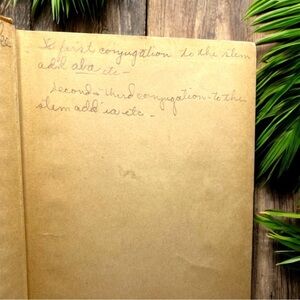 first conjugation to the stem
add aba etc -
Second & third conjugation - to the
stem add ia etc -